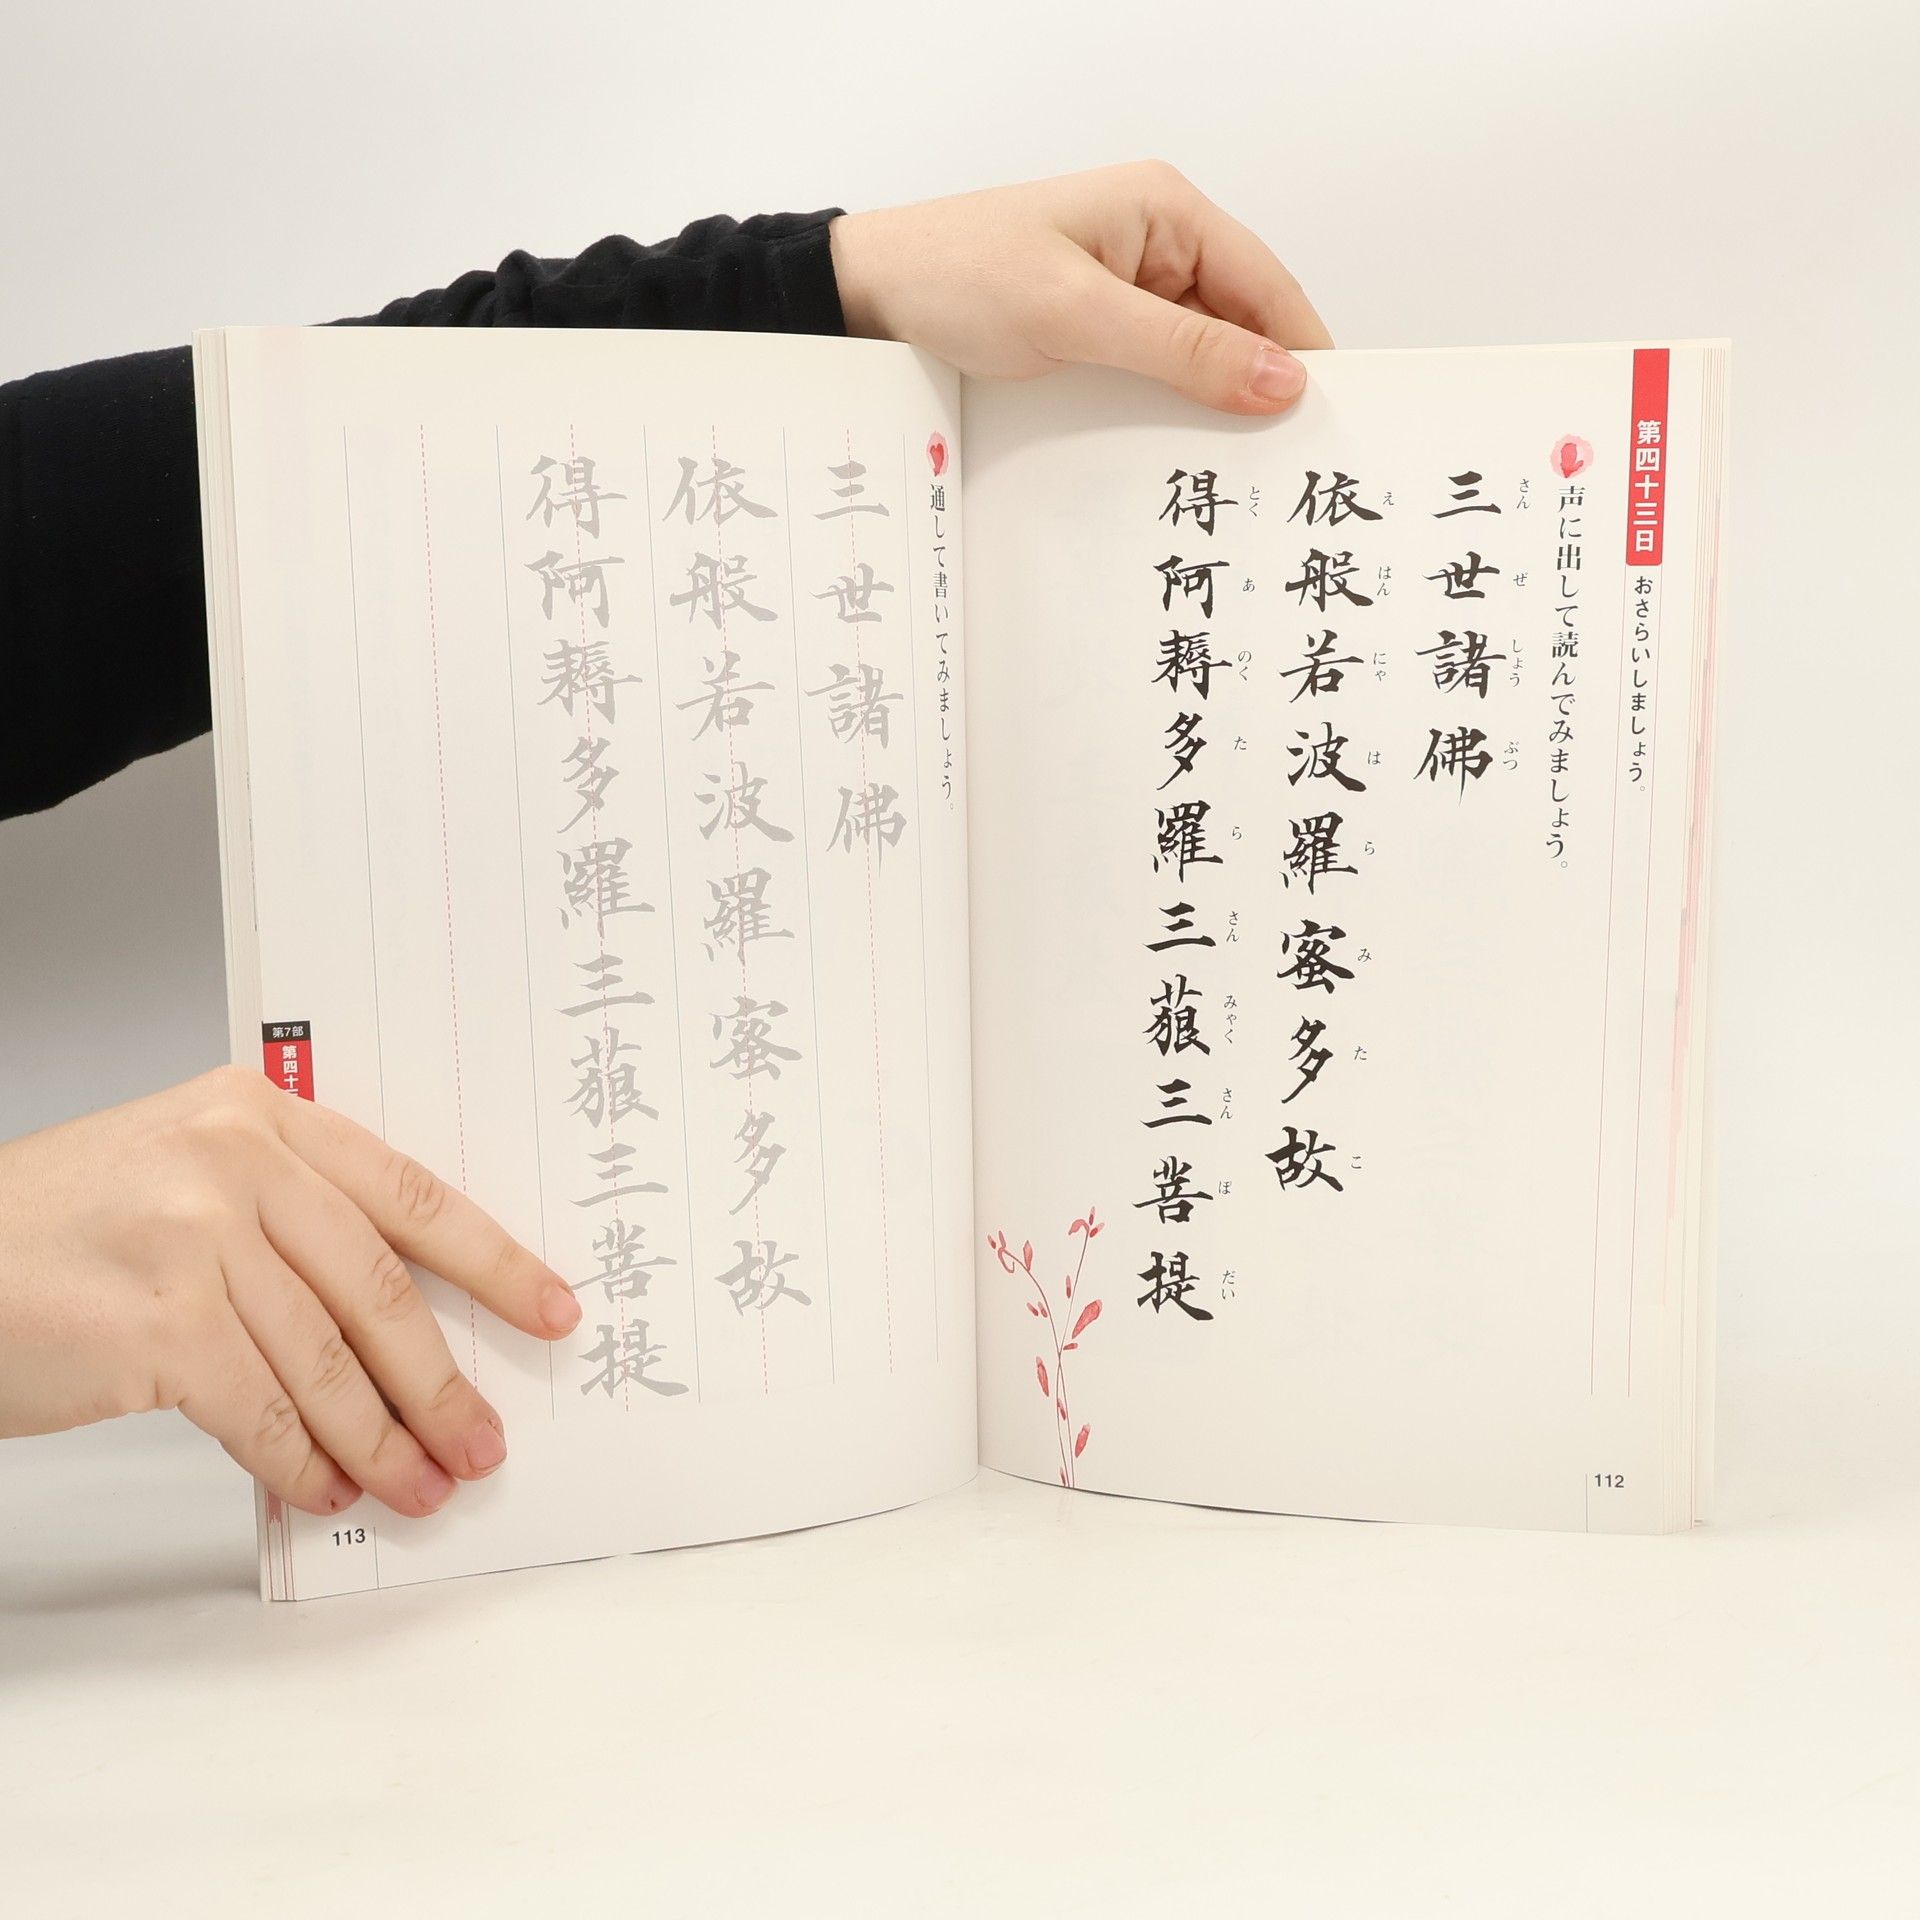 第四十三日
おさらいしましょう。
声に出して読んでみましょう。
三世諸佛
さん ぜ しょう ぶつ
依般若波羅蜜多故
え はん にゃ は ら み た こ
得阿耨多羅三藐三菩提
とく あ のく た ら さん みゃく さん ぼ だい
112
通して書いてみましょう。
三世諸佛
依般若波羅蜜多故
得阿耨多羅三藐三菩提
第7部
第四十三
113